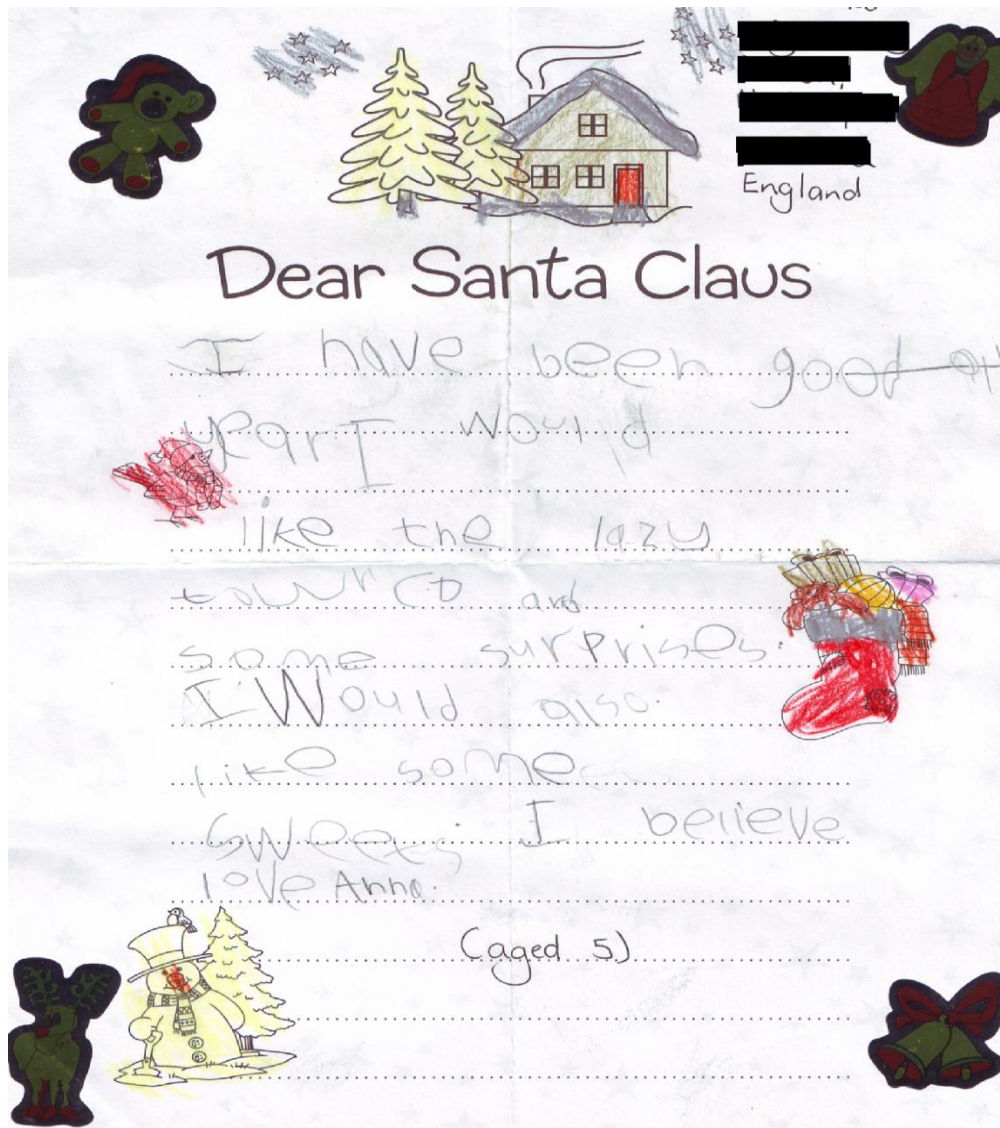 England
Dear Santa Claus
I have been good
year I would
like the lazy
and
some surprises.
I Would also.
like some
sweets. I believe
love Anna.
(aged 5)